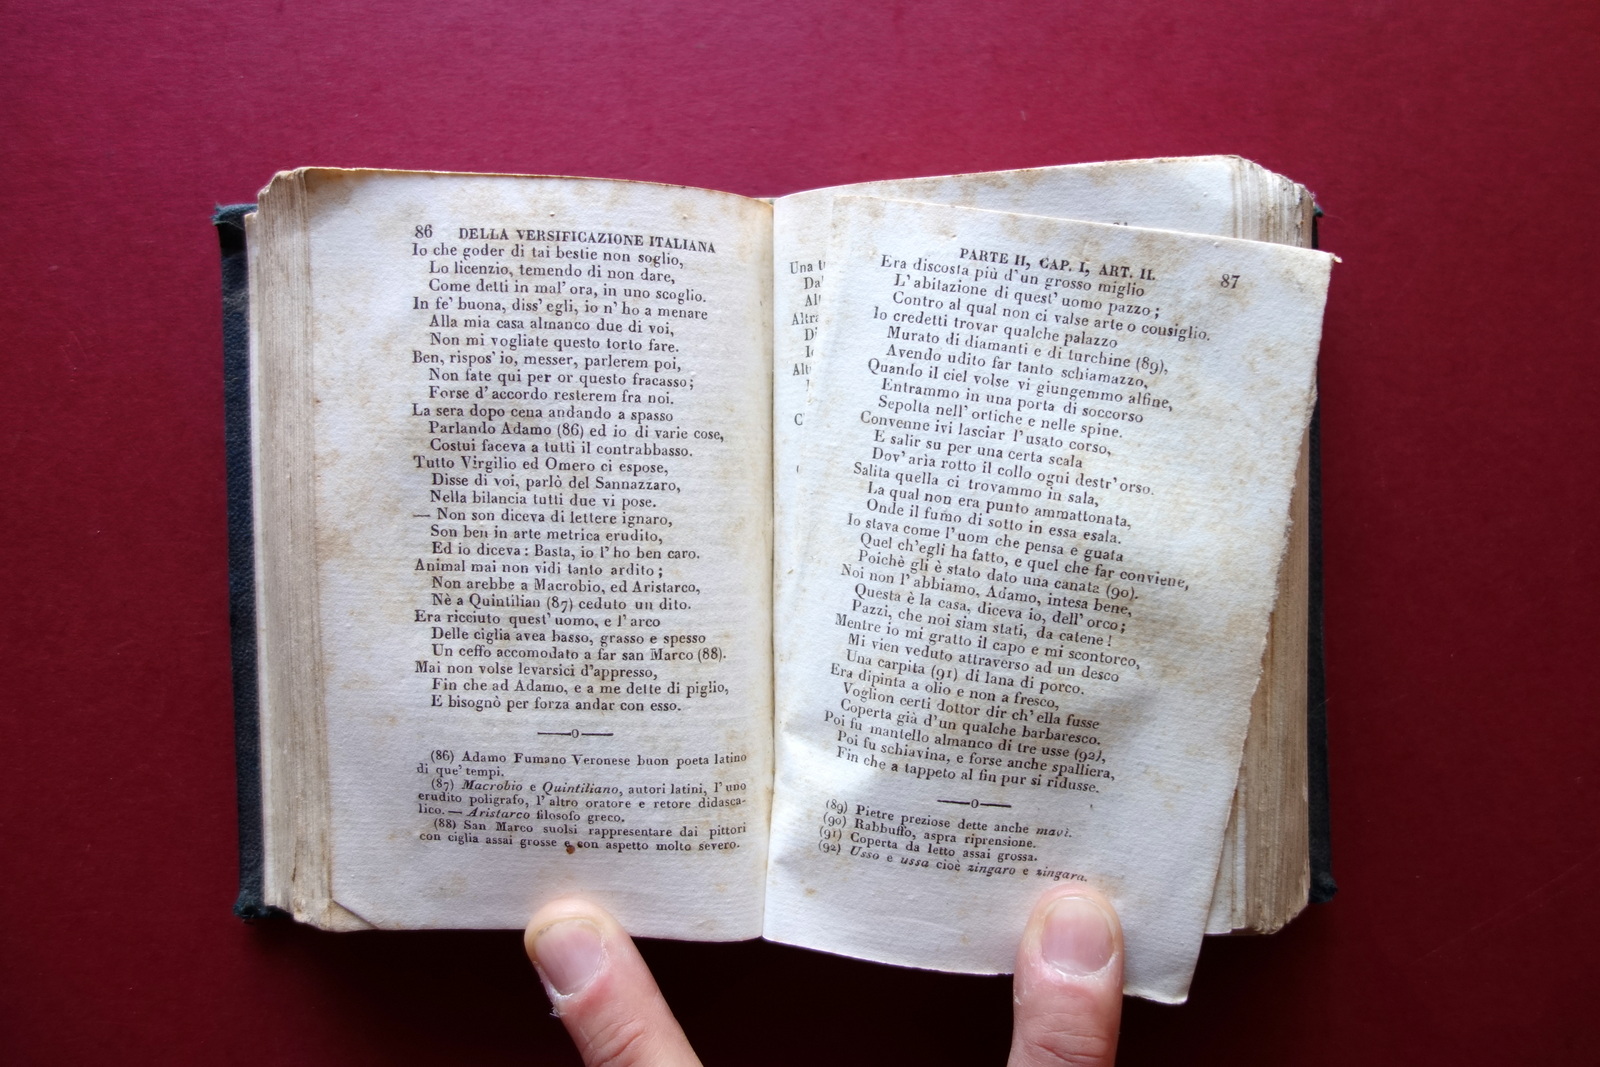 86 DELLA VERSIFICAZIONE ITALIANA
Io che goder di tai bestie non soglio,
Lo licenzio, temendo di non dare,
Come detti in mal' ora, in uno scoglio.
In fe' buona, diss' egli, io n' ho a menare
Alla mia casa almanco due di voi,
Non mi vogliate questo torto fare.
Ben, rispos' io, messer, parlerem poi,
Non fate qui per or questo fracasso;
Forse d' accordo resterem fra noi.
La sera dopo cena andando a spasso
Parlando Adamo (86) ed io di varie cose,
Costui faceva a tutti il contrabbasso.
Tutto Virgilio ed Omero ci espose,
Disse di voi, parlò del Sannazzaro,
Nella bilancia tutti due vi pose.
— Non son diceva di lettere ignaro,
Son ben in arte metrica erudito,
Ed io diceva: Basta, io l' ho ben caro.
Animal mai non vidi tanto ardito;
Non arebbe a Macrobio, ed Aristarco,
Nè a Quintilian (87) ceduto un dito.
Era ricciuto quest' uomo, e l' arco
Delle ciglia avea basso, grasso e spesso
Un ceffo accomodato a far san Marco (88).
Mai non volse levarsici d'appresso,
Fin che ad Adamo, e a me dette di piglio,
E bisognò per forza andar con esso.
(86) Adamo Fumano Veronese buon poeta latino
di que' tempi.
(87) Macrobio e Quintiliano, autori latini, l' uno
erudito poligrafo, l' altro oratore e retore didasca-
lico. — Aristarco filosofo greco.
(88) San Marco suolsi rappresentare dai pittori
con ciglia assai grosse e con aspetto molto severo.
Una
Da
Al
Altra
Di
Alt
PARTE II, CAP. I, ART. II. 87
Era discosta più d'un grosso miglio
L' abitazione di quest' uomo pazzo;
Contro al qual non ci valse arte o consiglio.
Io credetti trovar qualche palazzo
Murato di diamanti e di turchine (89),
Avendo udito far tanto schiamazzo,
Quando il ciel volse vi giungemmo alfine,
Entrammo in una porta di soccorso
Sepolta nell' ortiche e nelle spine.
Convenne ivi lasciar l'usato corso,
E salir su per una certa scala
Dov' aria rotto il collo ogni destr' orso.
Salita quella ci trovammo in sala,
La qual non era punto ammattonata,
Onde il fumo di sotto in essa esala.
Io stava come l'uom che pensa e guata
Quel ch'egli ha fatto, e quel che far conviene,
Poichè gli è stato dato una canata (90).
Noi non l' abbiamo, Adamo, intesa bene,
Questa è la casa, diceva io, dell' orco;
Pazzi, che noi siam stati, da catene!
Mentre io mi gratto il capo e mi scontorco,
Mi vien veduto attraverso ad un desco
Una carpita (91) di lana di porco.
Era dipinta a olio e non a fresco,
Voglion certi dottor dir ch' ella fusse
Coperta già d'un qualche barbaresco.
Poi fu mantello almanco di tre usse (92),
Poi fu schiavina, e forse anche spalliera,
Fin che a tappeto al fin pur si ridusse.
(89) Pietre preziose dette anche mavì.
(90) Rabbuffo, aspra riprensione.
(91) Coperta da letto assai grossa.
(92) Usso e ussa cioè zingaro e zingara.